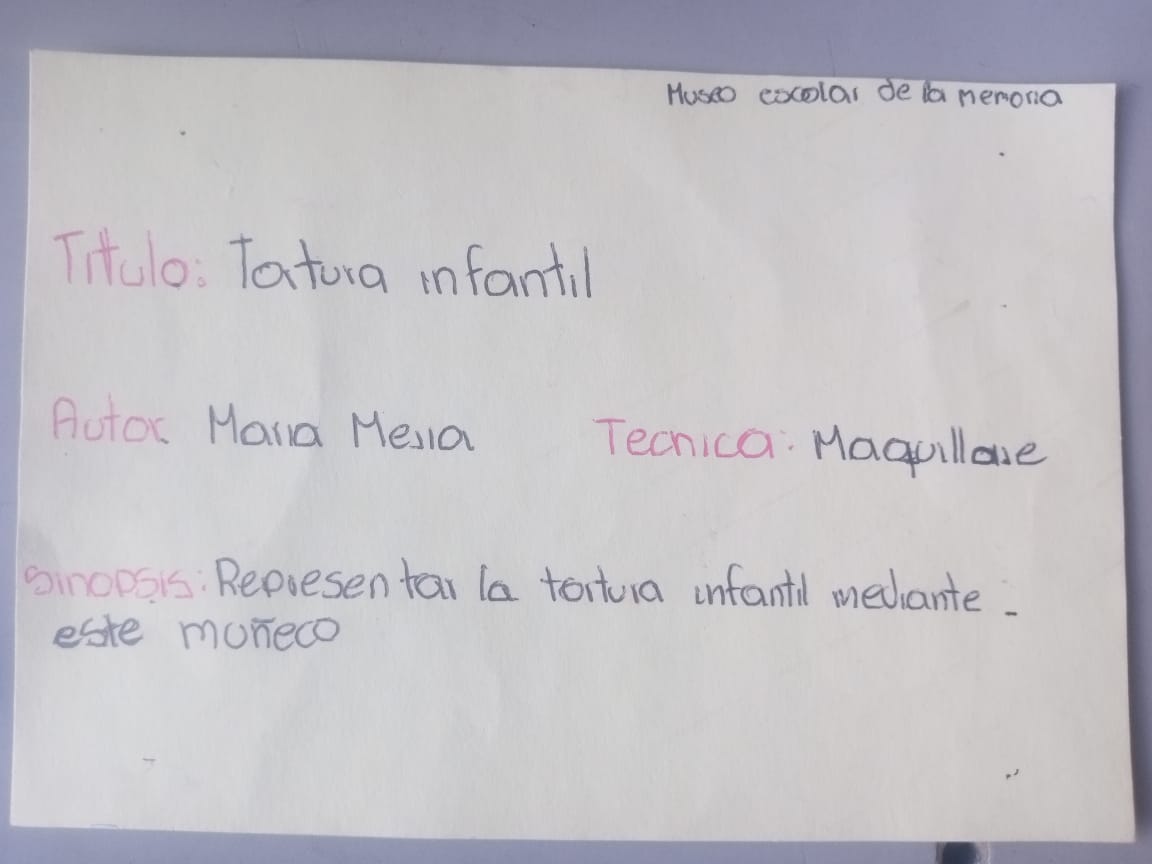 Museo escolar de la memoria
Titulo: Tortura infantil
Autor: Maria Mejia
Tecnica: Maquillaje
Sinopsis: Representar la tortura infantil mediante -
este muñeco